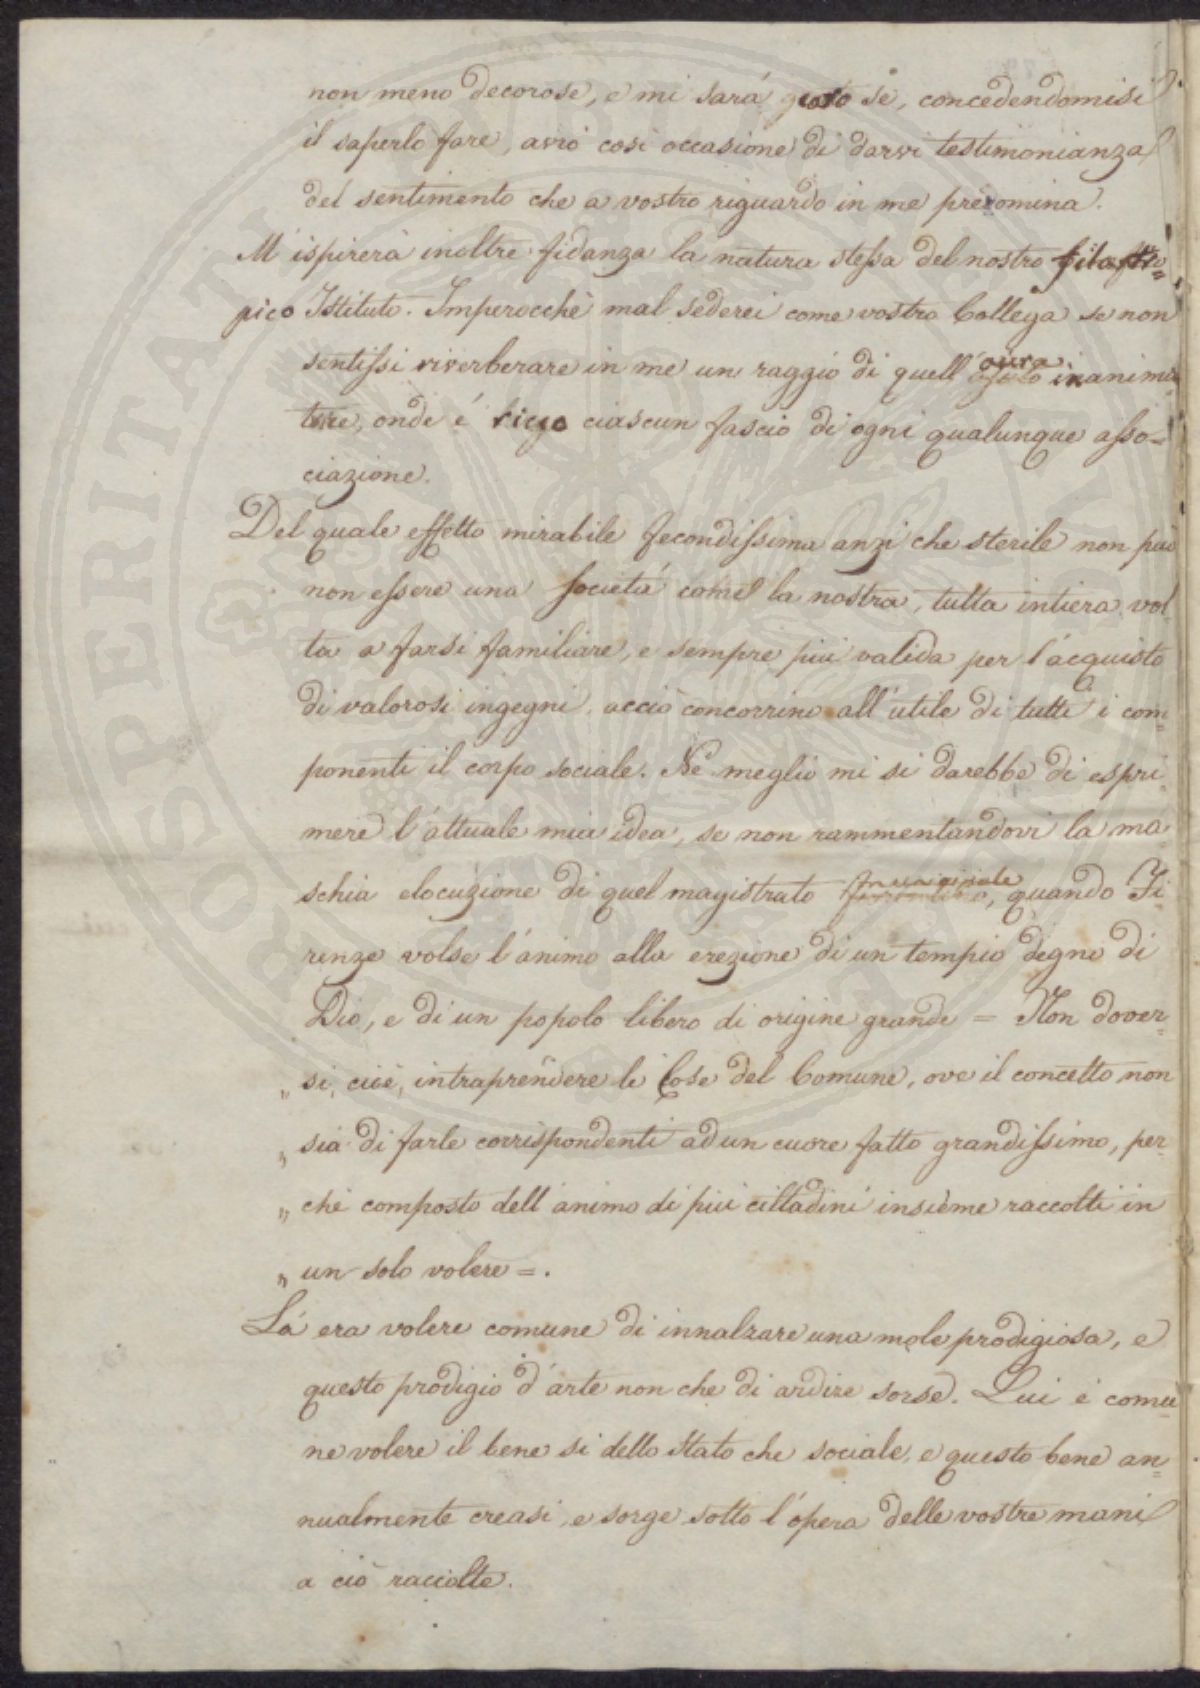 non meno decorose, e mi sará grato se, concedendomisi
il saperlo fare, avrò cosi occasione di darvi testimonianza
del sentimento che a vostro riguardo in me predomina.
M'ispirerà inoltre fidanza la natura stessa del nostro filantro=
pico Istituto. Imperocchè mal sederei come vostro Collega se non
sentissi riverberare in me un raggio di quell'aura inanima
trice, onde é ricco ciascun fascio di ogni qualunque asso=
ciazione.
Del quale effetto mirabile fecondissima anzi che sterile non può
non essere una società come la nostra, tutta intiera vol
ta a farsi familiare, e sempre piú valida per l'acquisto
di valorosi ingegni, acciò concorrino all'utile di tutti i com=
ponenti il corpo sociale. Nè meglio mi si darebbe di espri=
mere l'attuale mia idea, se non rammentandovi la ma
schia elocuzione di quel magistrato municipale, quando Fi
renze volse l'animo alla erezione di un tempio degno di
Dio, e di un popolo libero di origine grande = Non dover=
„ si, cioè, intraprendere le Cose del Comune, ove il concetto non
„ sia di farle corrispondenti ad un cuore fatto grandissimo, per
„ chè composto dell'animo di più cittadini insieme raccolti in
„ un solo volere =.
Là era volere comune di innalzare una mole prodigiosa, e
questo prodigio d'arte non che di ardire sorse. Qui è comu
ne volere il bene si dello Stato che sociale, e questo bene an=
nualmente creasi, e sorge sotto l'opera delle vostre mani
a ciò raccolte.
PROSPERITATI